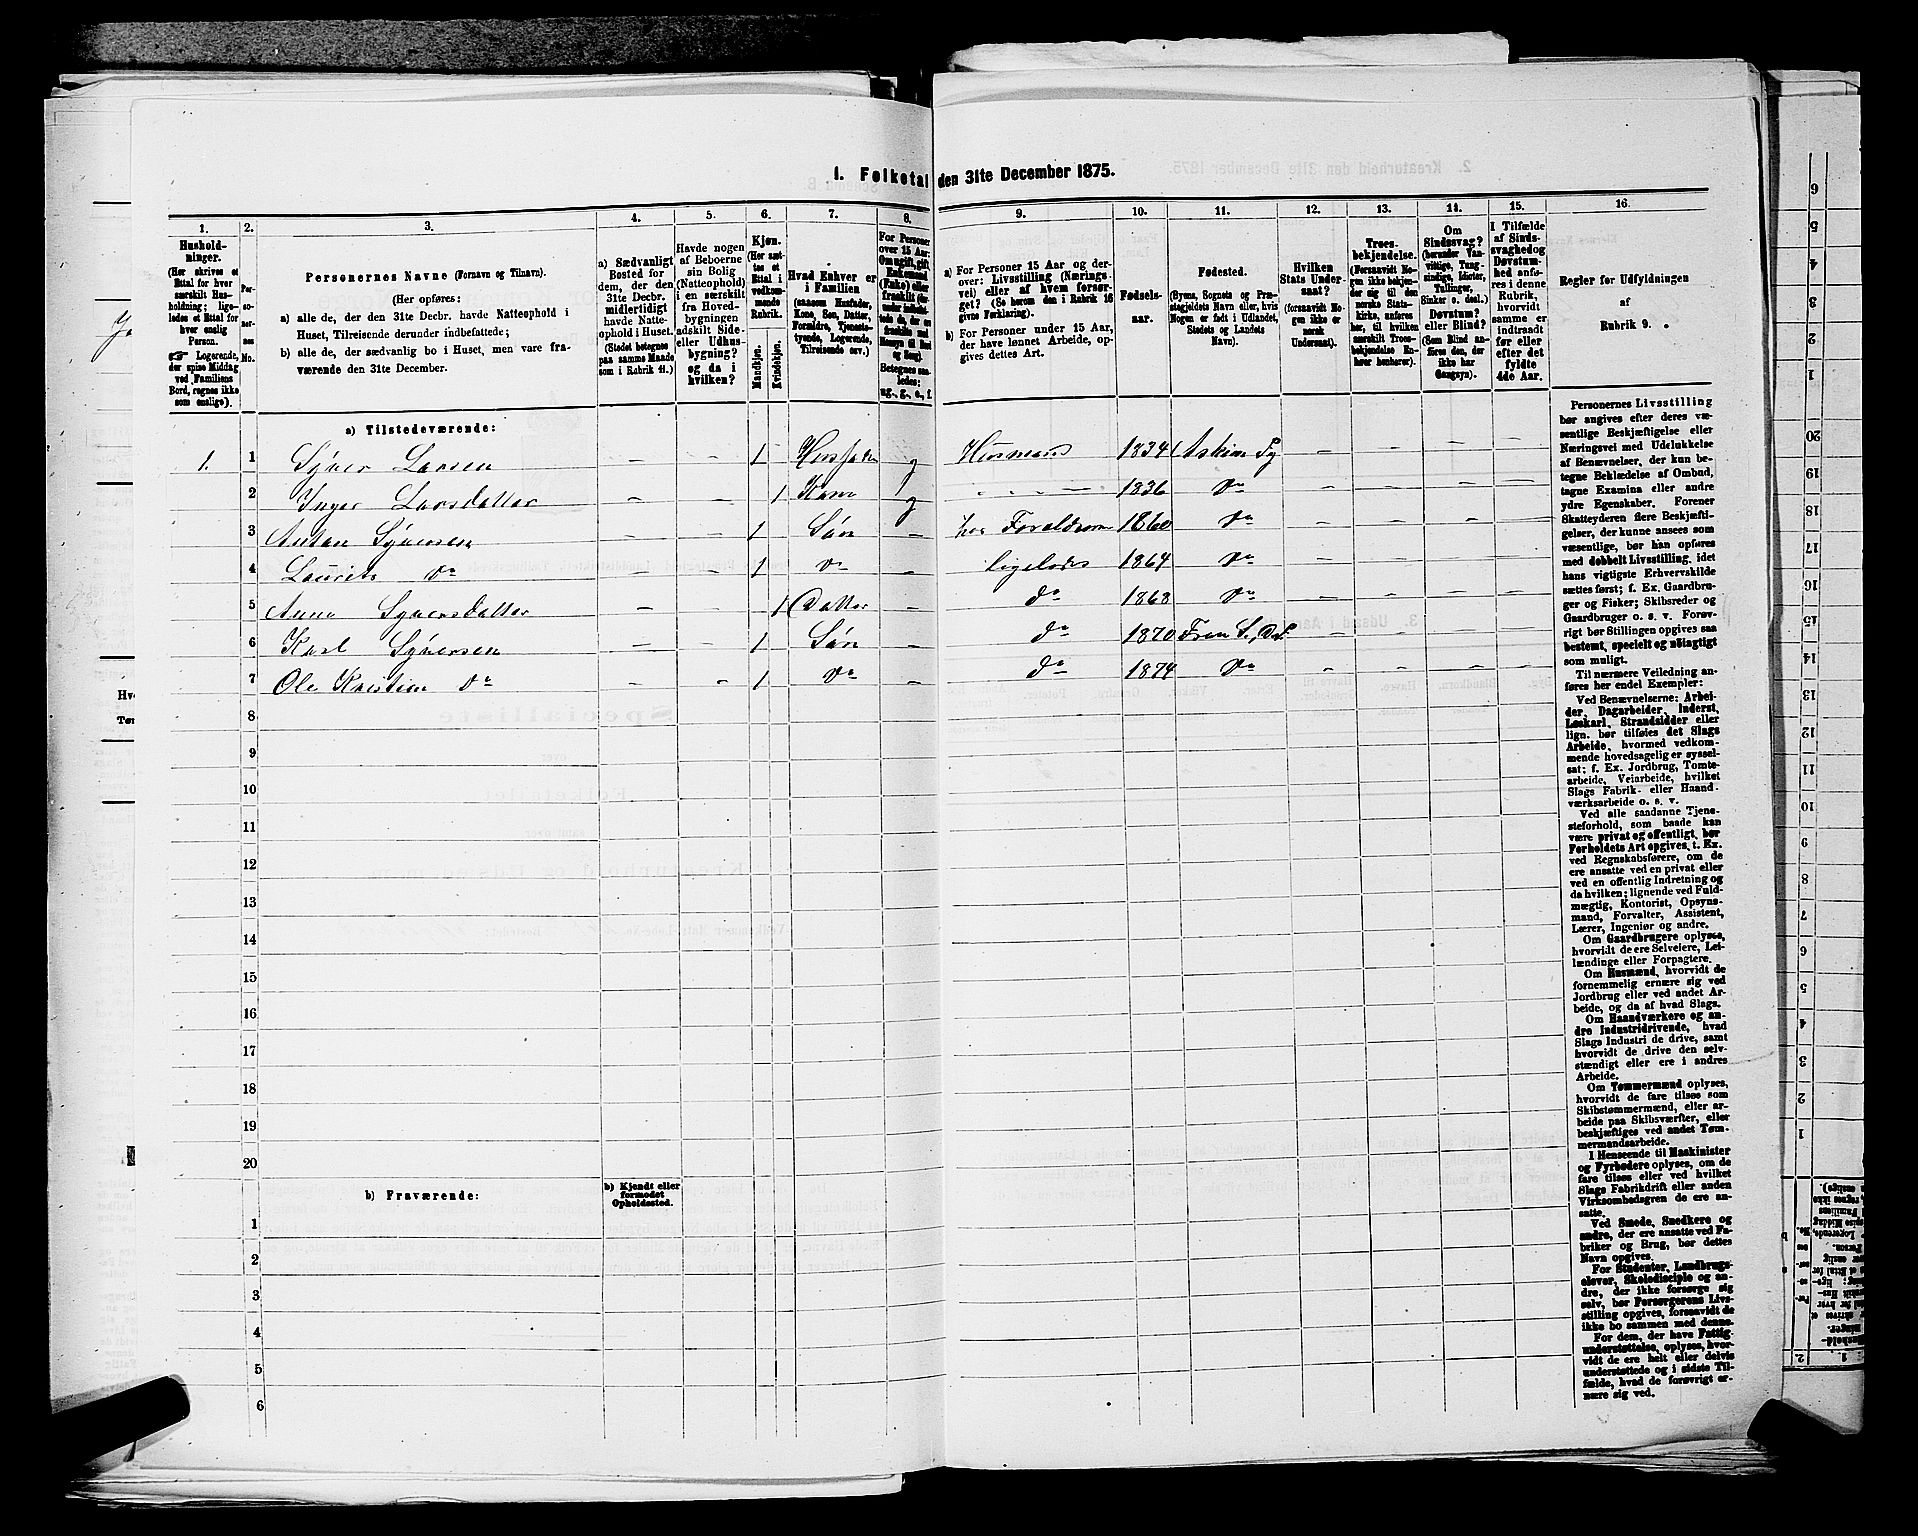 1. Folketal den 31te December 1875.
1. 2. 3. 4. 5. 6. 7. 8. 9. 10. 11. 12. 13. 14. 15. 16.
Hushold-
ninger.
(Her skrives et
Ettal for hver
særskilt Hus-
holdning; lige-
ledes et Ettal for
hver enslig
Person.
☞ Logerende,
der spise Middag
ved Familiens
Bord, regnes ikke
som enslige).
Per-
so-
ner-
nes
No.
Personernes Navne (Fornavn og Tilnavn).
(Her opføres:
a) alle de, der den 31te Decbr. havde Natteophold i
Huset, Tilreisende derunder indbefattede;
b) alle de, der sædvanlig bo i Huset, men vare fra-
værende den 31te December.
a) Sædvanligt
Bosted for
dem, der den
31te Decbr.
midlertidigt
havde Natte-
ophold i Huset.
(Stedet betegnes
paa samme Maade
som i Rubrik 11.)
Havde nogen
af Beboerne
sin Bolig
(Natteophold)
i en særskilt
fra Hoved-
bygningen
adskilt Side-
eller Udhus-
bygning?
og da i
hvilken?
Kjøn.
(Her sæt-
tes et
Ettal i
vedkom-
mende
Rubrik.
Mandkjøn.
Kvindekjøn.
Hvad Enhver er
i Familien
(saasom Husfader,
Kone, Søn, Datter,
Forældre, Tjeneste-
tyende, Logerende,
Tilreisende osv.)
For Personer
over 15 Aar:
Om ugift, gift,
Enkemand
(Enke) eller
fraskilt
Betegnes saa-
ledes:
ug., g., e., f.
a) For Personer 15 Aar og der-
over: Livsstilling (Nærings-
vei) eller af hvem forsør-
get? (Se herom den i Rubrik 16
givne Forklaring).
b) For Personer under 15 Aar,
der have lønnet Arbeide, op-
gives dettes Art.
Fødsels-
aar.
Fødested.
(Byens, Sognets og Præ-
stegjeldets Navn eller, hvis
Nogen er født i Udlandet,
Stedets og Landets
Navn).
Hvilken
Stats Under-
saat?
(forsaavidt No-
gen ikke er
norsk
Undersaat).
Troes-
bekjendelse.
(Forsaavidt No-
gen ikke bekjen-
der sig til den
norske Stats-
kirke, anføres
her, til hvilken
særskilt Troes-
bekjendelse En-
hver henhører).
Om
Sindssvag?
(herunder Van-
vittige, Tung-
sindige, Idioter,
Sinker o. desl.)
Døvstum?
eller Blind?
(Som Blind an-
føres den, der
ikke har
Gangsyn).
I Tilfælde
af Sinds-
svaghed og
Døvstum-
hed anfø-
res i denne
Rubrik,
hvorvidt
samme er
indtraadt
før eller
efter det
fyldte
4de Aar.
Regler for Udfyldningen
af
Rubrik 9.
a) Tilstedeværende:
1. 1 Syver Larsen – – 1 Husfader g Husmand 1834 Askim Pg – – – –
2 Inger Larsdatter – – 1 Kone g – 1836 Do – – – –
3 Anton Syversen – – 1 Søn – hos Forældrene 1860 Do – – – –
4 Laurits Do – – 1 Do – ligeledes 1864 Do – – – –
5 Anne Syversdatter – – 1 Datter – Do 1868 Do – – – –
6 Karl Syversen – – 1 Søn – Do 1870 – – – –
7 Ole Kristian Do – – 1 Do – Do 1874 Do – – – –
8
9
10
11
12
13
14
15
16
17
18
19
20
b) Fraværende:
b) Kjendt eller
formodet
Opholdssted.
1
2
3
4
5
6
Personernes Livsstilling
bør angives efter deres væ-
sentlige Beskjæftigelse eller
Næringsvei med Udelukkelse
af Benævnelser, der kun be-
tegne Beklædelse af Ombud,
tagne Examina eller andre
ydre Egenskaber. Forener
Skatteyderen flere Beskjæfti-
gelser, der kunne ansees som
væsentlige, bør han opføres
med dobbelt Livsstilling, idet
hans vigtigste Erhvervskilde
sættes først; f. Ex. Gaardbru-
ger og Fisker; Skibsreder og
Gaardbruger o. s. v. Forøv-
rigt bør Stillingen opgives saa
bestemt, specielt og nöiagtigt
som muligt.
Til nærmere Veiledning an-
føres her endel Exempler:
Ved Benævnelserne: Arbei-
der, Dagarbeider, Inderst,
Løskarl, Strandsidder eller
lign. bør tilføies det Slags
Arbeide, hvormed vedkom-
mende hovedsagelig er syssel-
sat; f. Ex. Jordbrug, Tomte-
arbeide, Veiarbeide, hvilket
Slags Fabrik- eller Haand-
værksarbeide o. s. v.
Ved alle saadanne Tjene-
steforhold, som baade kan
være privat og offentligt, bør
Forholdets Art opgives, t. Ex.
ved Regnskabsførere, om de
ere ansatte ved en privat eller
ved en offentlig Indretning og
da hvilken; lignende ved Fuld-
mægtig, Kontorist, Opsyns-
mand, Forvalter, Assistent,
Lærer, Ingeniør og andre.
Om Gaardbrugere oplyses,
hvorvidt de ere Selveiere, Lei-
lændinge eller Forpagtere.
Om Husmænd, hvorvidt de
fornemmelig ernære sig ved
Jordbrug eller ved andet Ar-
beide, og da af hvad Slags.
Om Haandværkere og an-
dre Industridrivende, hvad
Slags Industri de drive, samt
hvorvidt de drive den selv-
stændigt eller ere i andres
Arbeide.
Om Tømmermænd oplyses,
hvorvidt de fare tilsøs som
Skibstømmermænd, eller ar-
beide paa Skibsværfter, eller
beskjæftiges ved andet Tøm-
mermandsarbeide.
I Henseende til Maskinister
og Fyrbødere oplyses, om de
fare tilsøs eller ved hvilket
Slags Fabrikdrift eller anden
Virksomhedsgren de ere an-
satte.
Ved Smede, Snedkere og
andre, der ere ansatte ved Fa-
briker og Brug, bør dettes
Navn opgives.
For Studenter, Landbrugs-
elever, Skoledisciple og an-
dre, der ikke forsørge sig
selv, bør Forsørgerens Livs-
stilling opgives, forsaavidt de
ikke bo sammen med denne.
For dem, der have Fattig-
understøttelse, oplyses, hvor-
vidt de ere helt eller delvis
understøttede og i sidste Til-
fælde, hvad de forøvrigt er-
nære sig ved.